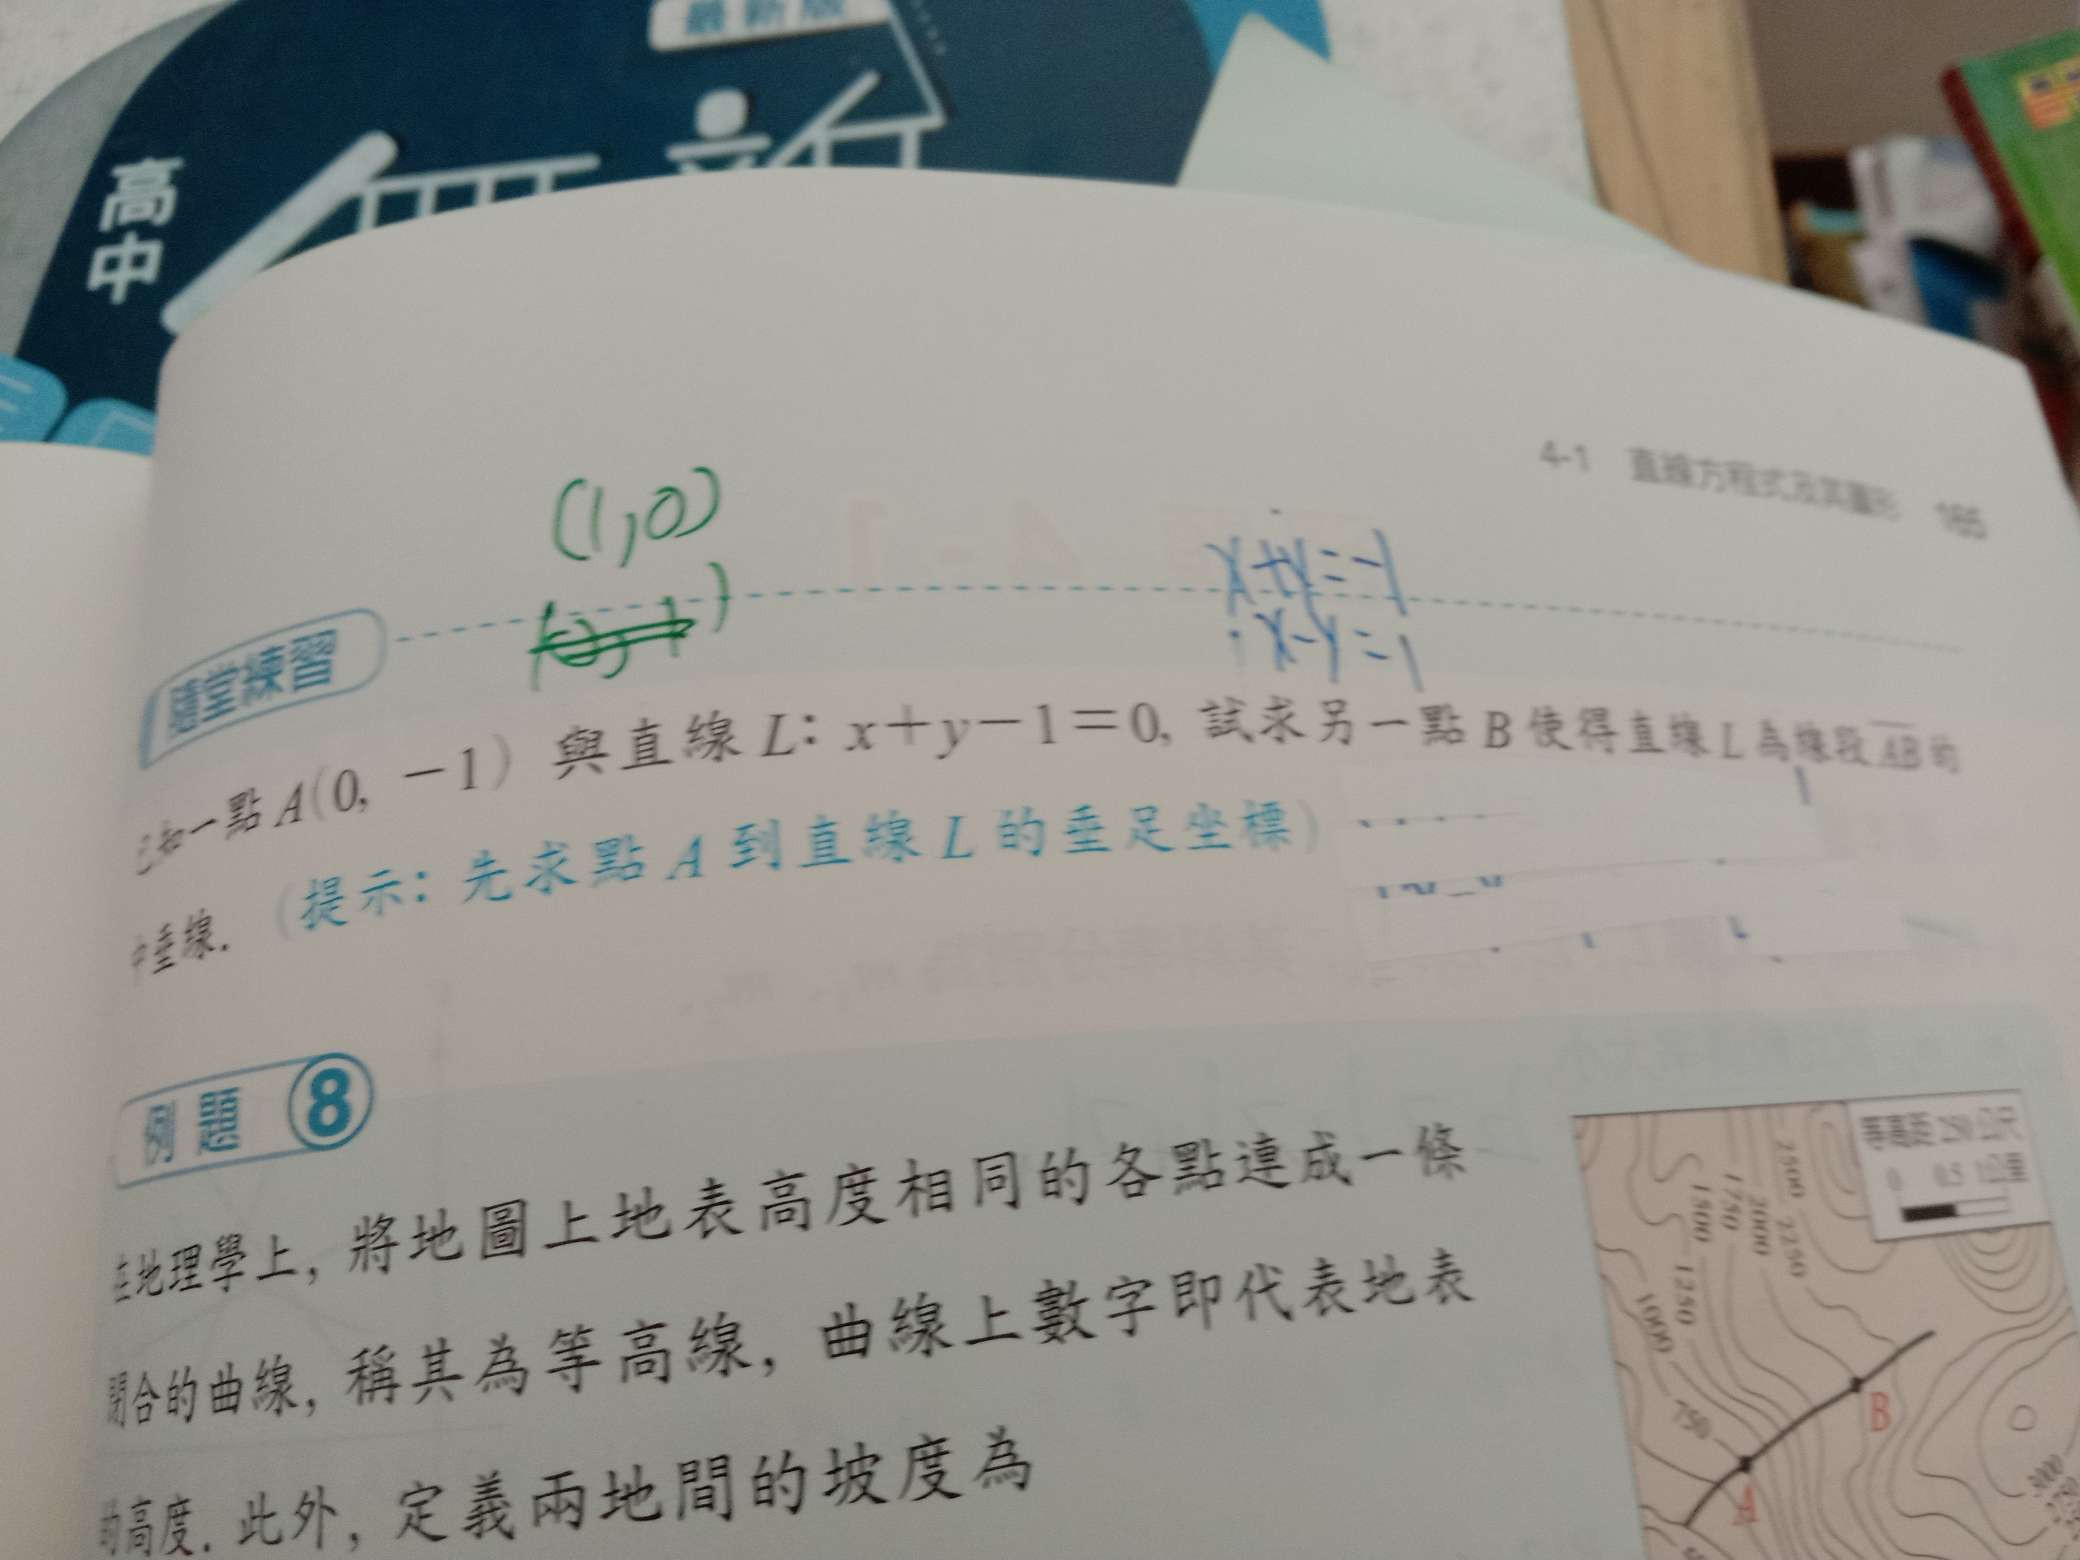 最新版
高中
4-1 直線方程式及其圖形 185
(1,0)
x+y=-1
x-y=1
隨堂練習
已知一點 A(0, -1) 與直線 L: x+y-1=0, 試求另一點 B 使得直線 L 為線段 AB 的
中垂線. (提示: 先求點 A 到直線 L 的垂足坐標)
例題 8
在地理學上, 將地圖上地表高度相同的各點連成一條
閉合的曲線, 稱其為等高線, 曲線上數字即代表地表
的高度. 此外, 定義兩地間的坡度為
等高距 250 公尺
0 0.5 1公里
2500
2250
2000
1750
1500
1250
1000
750
B
A
3000